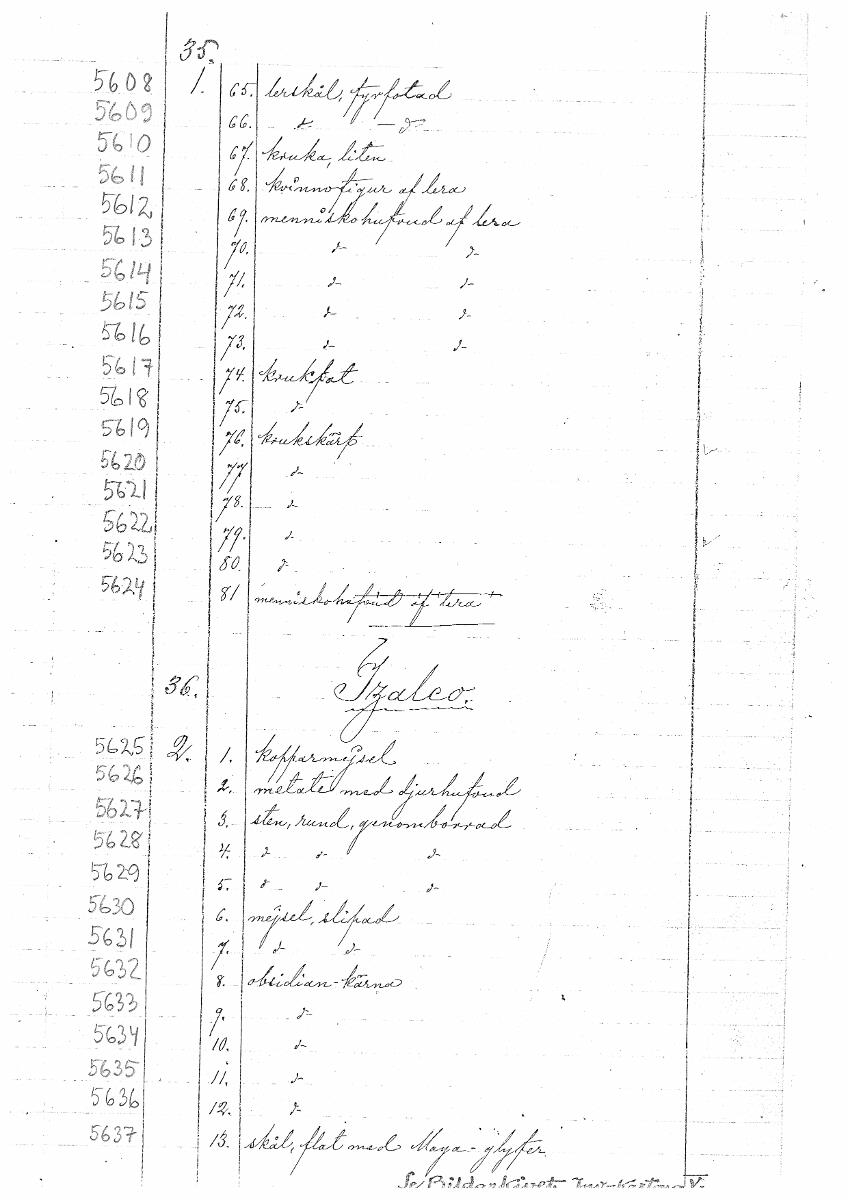 35.
5608 1. 65. lerskål, fyrfotad
5609 66. d- -d-
5610 67. kruka, liten
5611 68. kvinnofigur af lera
5612 69. menniskohufvud af lera
5613 70. d- d-
5614 71. d- d-
5615 72. d- d-
5616 73. d- d-
5617 74. krukfot
5618 75. d-
5619 76. krukskärf
5620 77 d-
5621 78. d-
5622 79. d-
5623 80. d-
5624 81 menniskohufvud af lera
36. Izalco.
5625 2. 1. kopparmejsel
5626 2. metate med djurhufvud
5627 3. sten, rund, genomborrad
5628 4. d- d- d-
5629 5. d- d- d-
5630 6. mejsel, slipad
5631 7. d- d-
5632 8. obsidian-kärna
5633 9. d-
5634 10. d-
5635 11. d-
5636 12. d-
5637 13. skål, flat med Maya-glyfer
Se Bildarkivet